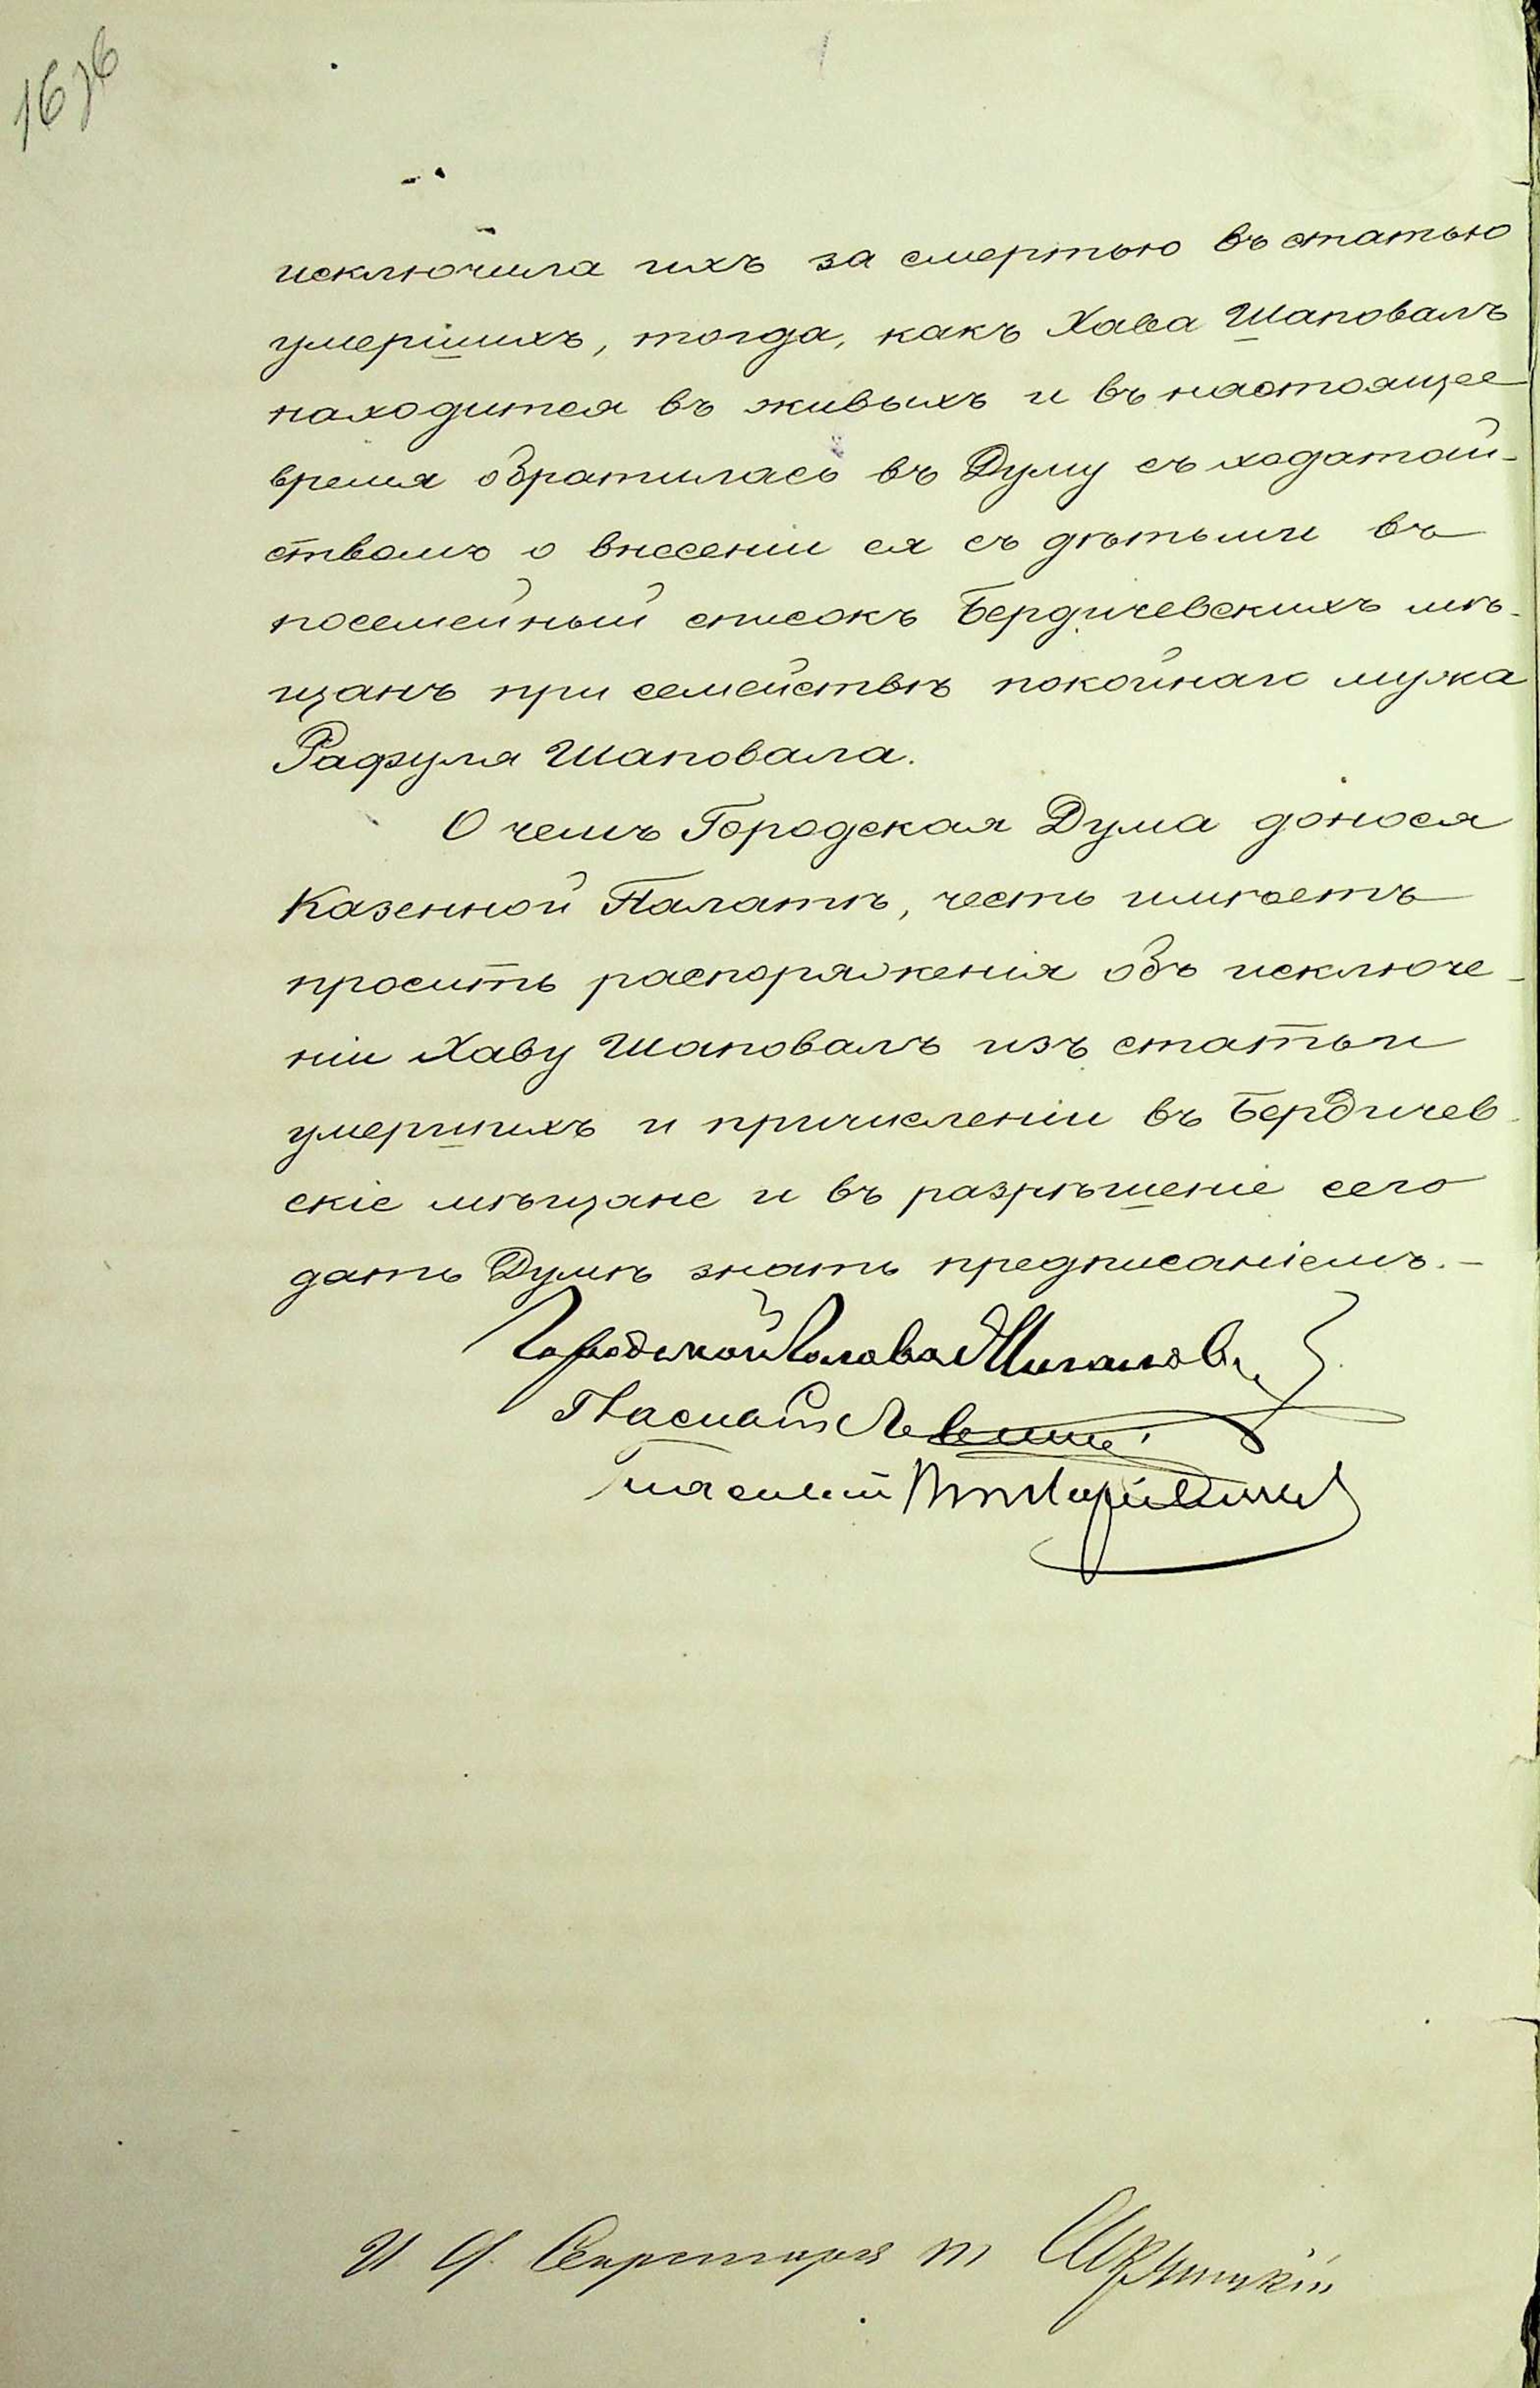 исключила ихъ за смертью въ статью
умершихъ, тогда, какъ Хава Шаповалъ
находится въ живыхъ и въ настоящее
время обратилась въ Думу съ ходатай-
ствомъ о внесеніи ея съ дѣтьми въ
посемейный списокъ Бердичевскихъ мѣ-
щанъ при семействѣ покойнаго мужа
Рафуля Шаповала.
О чемъ Городская Дума донося
Казенной Палатѣ, честь имѣетъ
просить распоряженія объ исключе-
ніи Хаву Шаповалъ изъ статьи
умершихъ и причисленіи въ Бердичев-
скіе мѣщане и въ разрѣшеніе сего
дать Думѣ знать предписаніемъ.-
Городской Голова
Гласный
Гласный
И. д. Секретаря